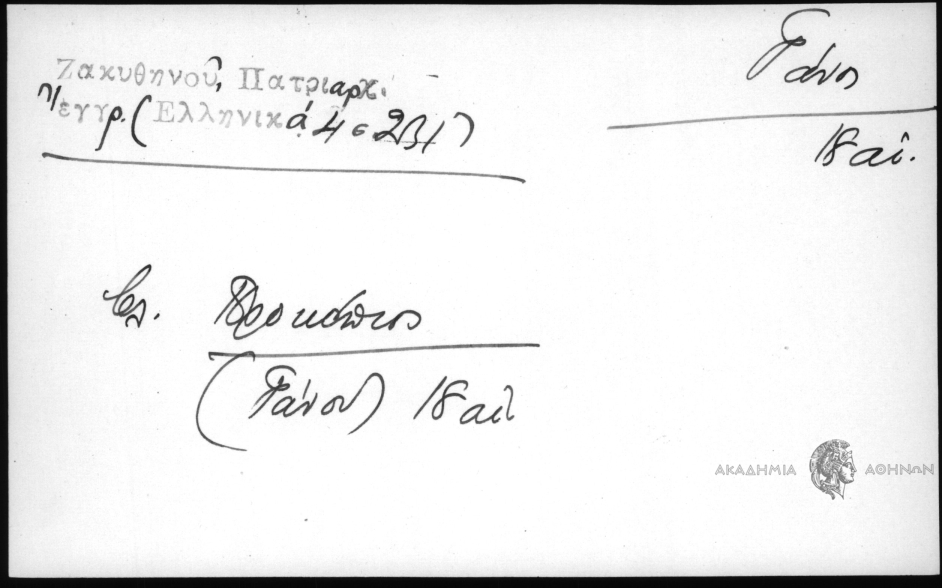 Ζακυθηνοῦ, Πατριαρχ.
ἔγγρ. (Ἑλληνικά 4 σ 231)
Γάνος
18 αἰ.
βλ. Προκόπιος
(Γάνου) 18 αἰ
ΑΚΑΔΗΜΙΑ ΑΘΗΝΩΝ